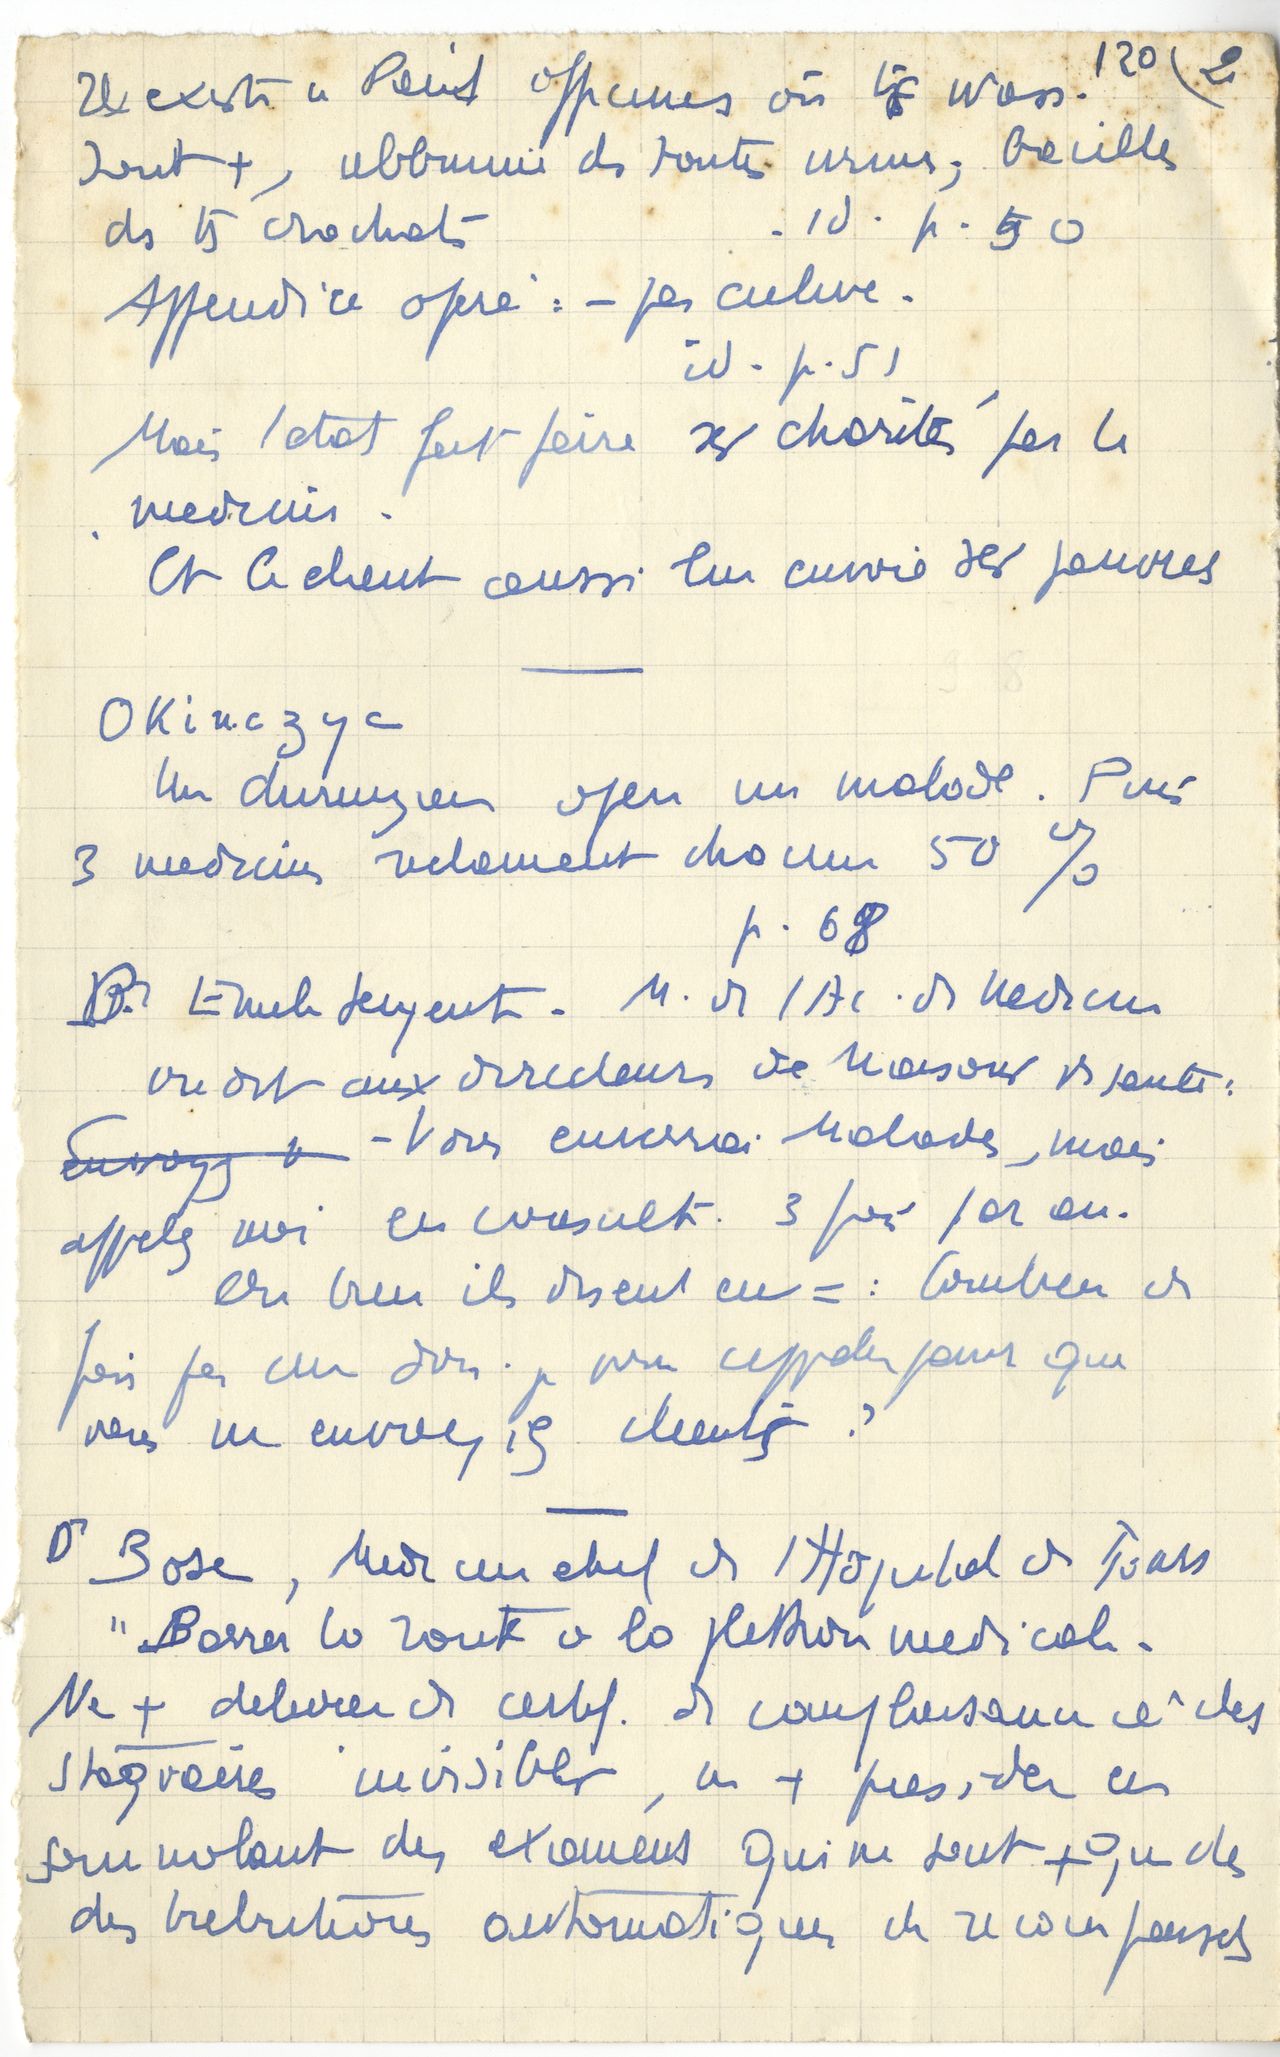 120 (2
Il existe à Paris officines où ts Wass.
sont +, albumine ds toutes urines, bacilles
ds ts crachats . id . p . 50
Appendice opéré : - pas enlevé .
id . p . 51
Mais l'etat fait faire ses charités par le
medecin .
Et le client aussi lui envoie ses pauvres
Okinczyc
Un chirurgien opere un malade . Puis
3 medecins reclament chacun 50 %
p . 68
Dr Emile Sergent - M . de l'Ac . de Medecine
ecrit aux directeurs de Maisons de santé :
- Vous enverrai Malades, mais
appelez moi en consult . 3 fois par an .
Ou bien ils disent en = : Combien de
fois par an dois - je vous appeler pour que
vous m envoyiez clients ?
Dr Bosc, Medecin chef de l'Hopital de Tours
" Barrer la route a la plethore medicale .
Ne + delivrer de certif . de complaisance à des
stagiaires invisibles, ne + presider en
somnolant des examens qui ne sont + que des
des distributions automatiques de recompenses